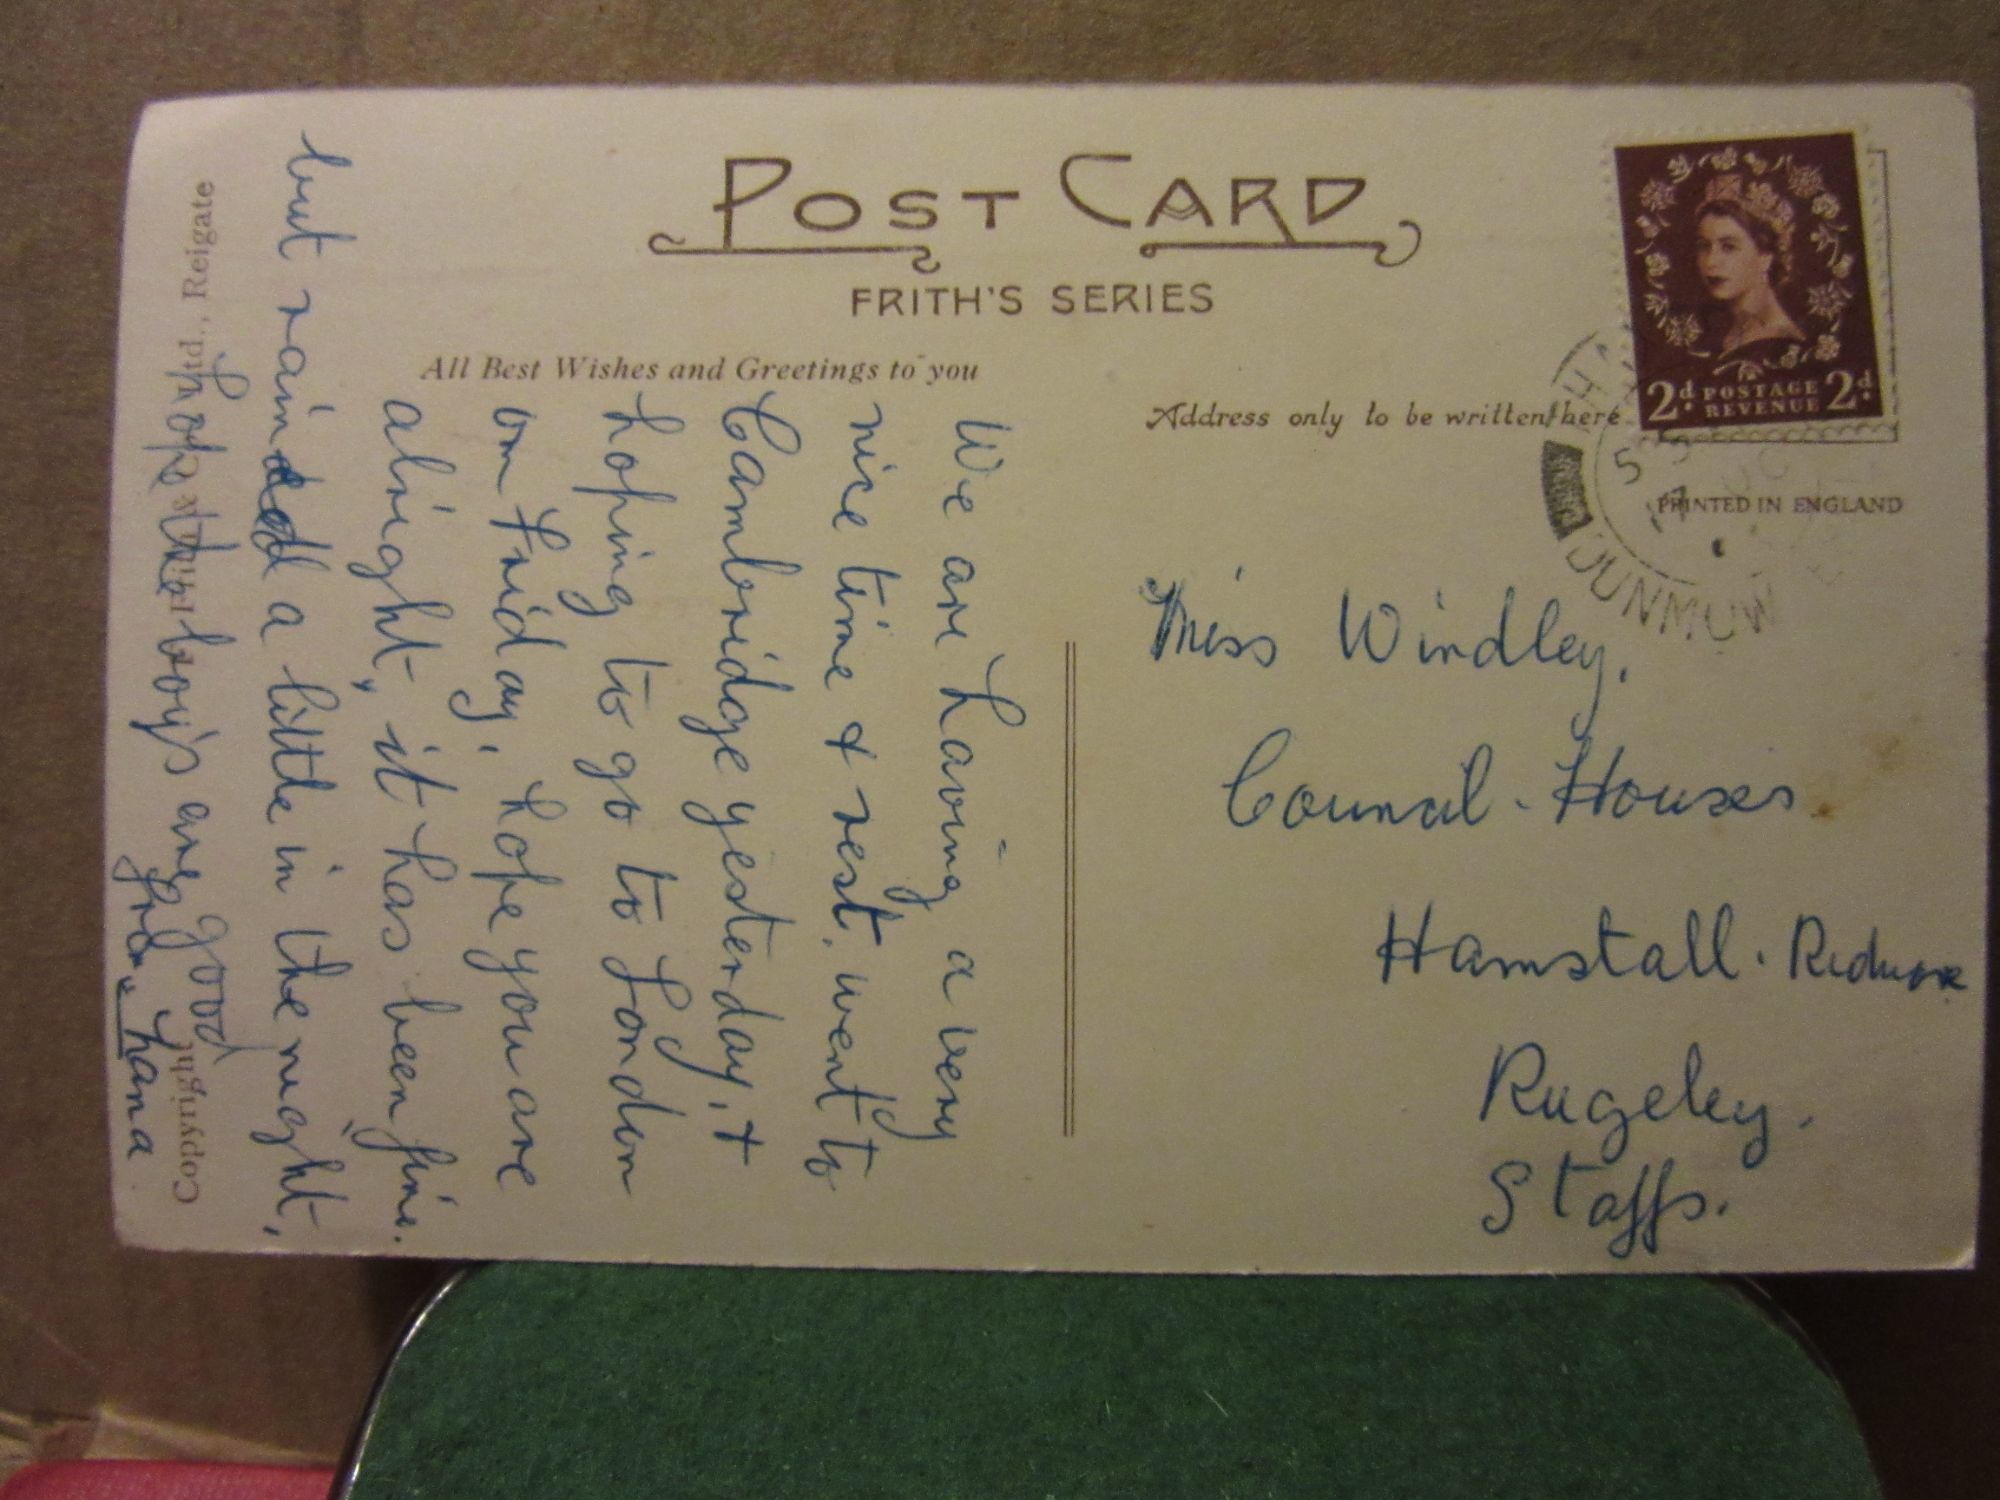 POST CARD
FRITH'S SERIES
All Best Wishes and Greetings to you
Address only to be written here
2d POSTAGE REVENUE 2d
PRINTED IN ENGLAND
DUNMOW
We are having a very
nice time & rest, went to
Cambridge yesterday, &
hoping to go to London
on Friday, hope you are
alright, it has been fine.
but rained a little in the night,
hope the boy's are good
from
Miss Windley,
Council-Houses
Hamstall. Ridware
Rugeley.
Staffs.
Copyright
Ltd., Reigate